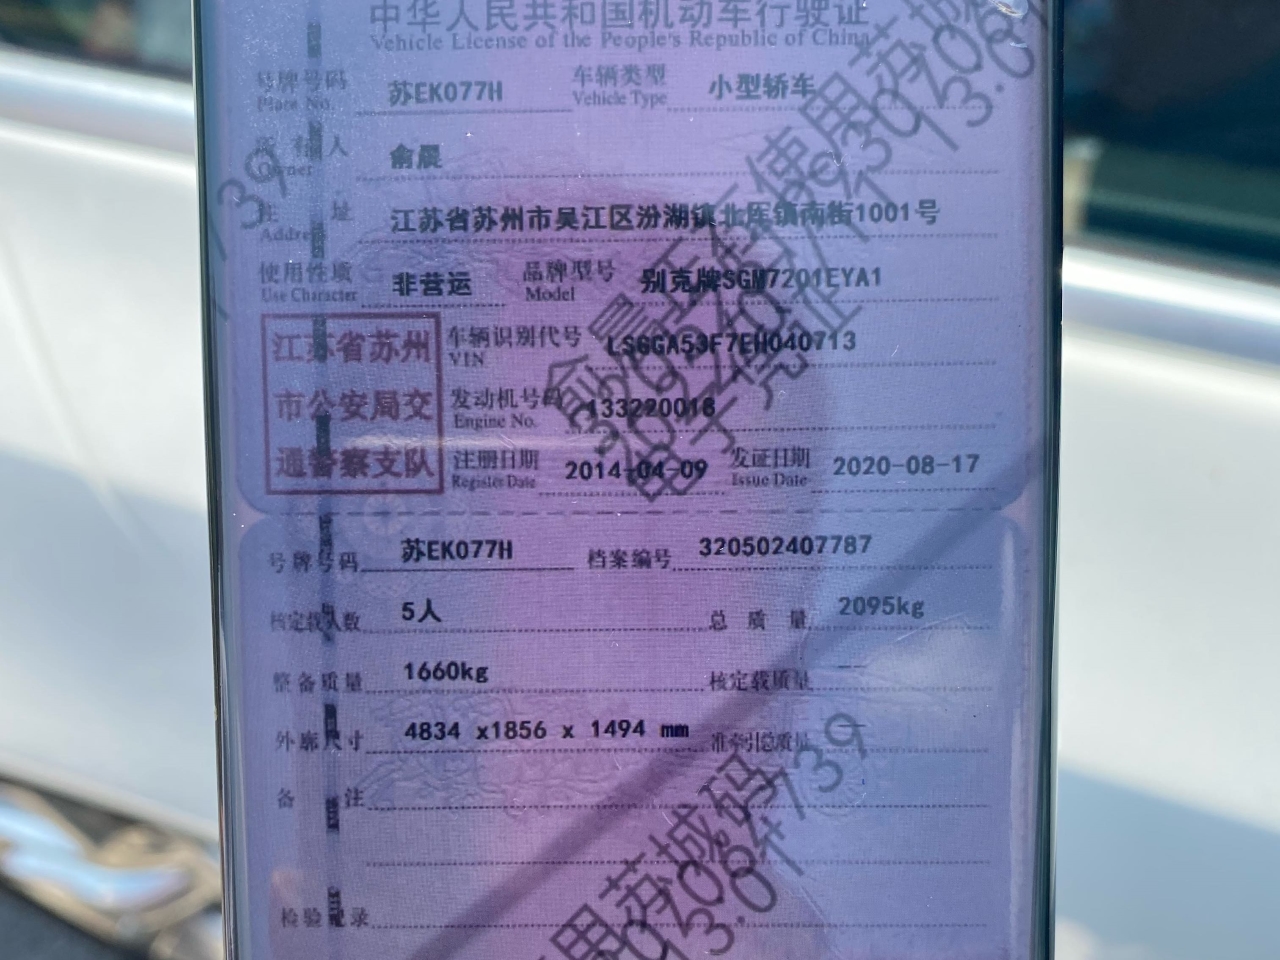 中华人民共和国机动车行驶证
Vehicle License of the People's Republic of China
号牌号码 苏EK077H 车辆类型 小型轿车
Plate No. Vehicle Type
所有人 俞晨
Owner
住 址 江苏省苏州市吴江区汾湖镇北厍镇南街1001号
Address
使用性质 非营运 品牌型号 别克牌SGM7201EYA1
Use Character Model
江苏省苏州
市公安局交
通警察支队
车辆识别代号 LSGGA53F7EH040713
VIN
发动机号码 133220018
Engine No.
注册日期 2014-04-09 发证日期 2020-08-17
Register Date Issue Date
号牌号码 苏EK077H 档案编号 320502407787
核定载人数 5人 总 质 量 2095kg
整备质量 1660kg 核定载质量 —
外廓尺寸 4834 x1856 x 1494 mm 准牵引总质量 —
备 注
检验记录